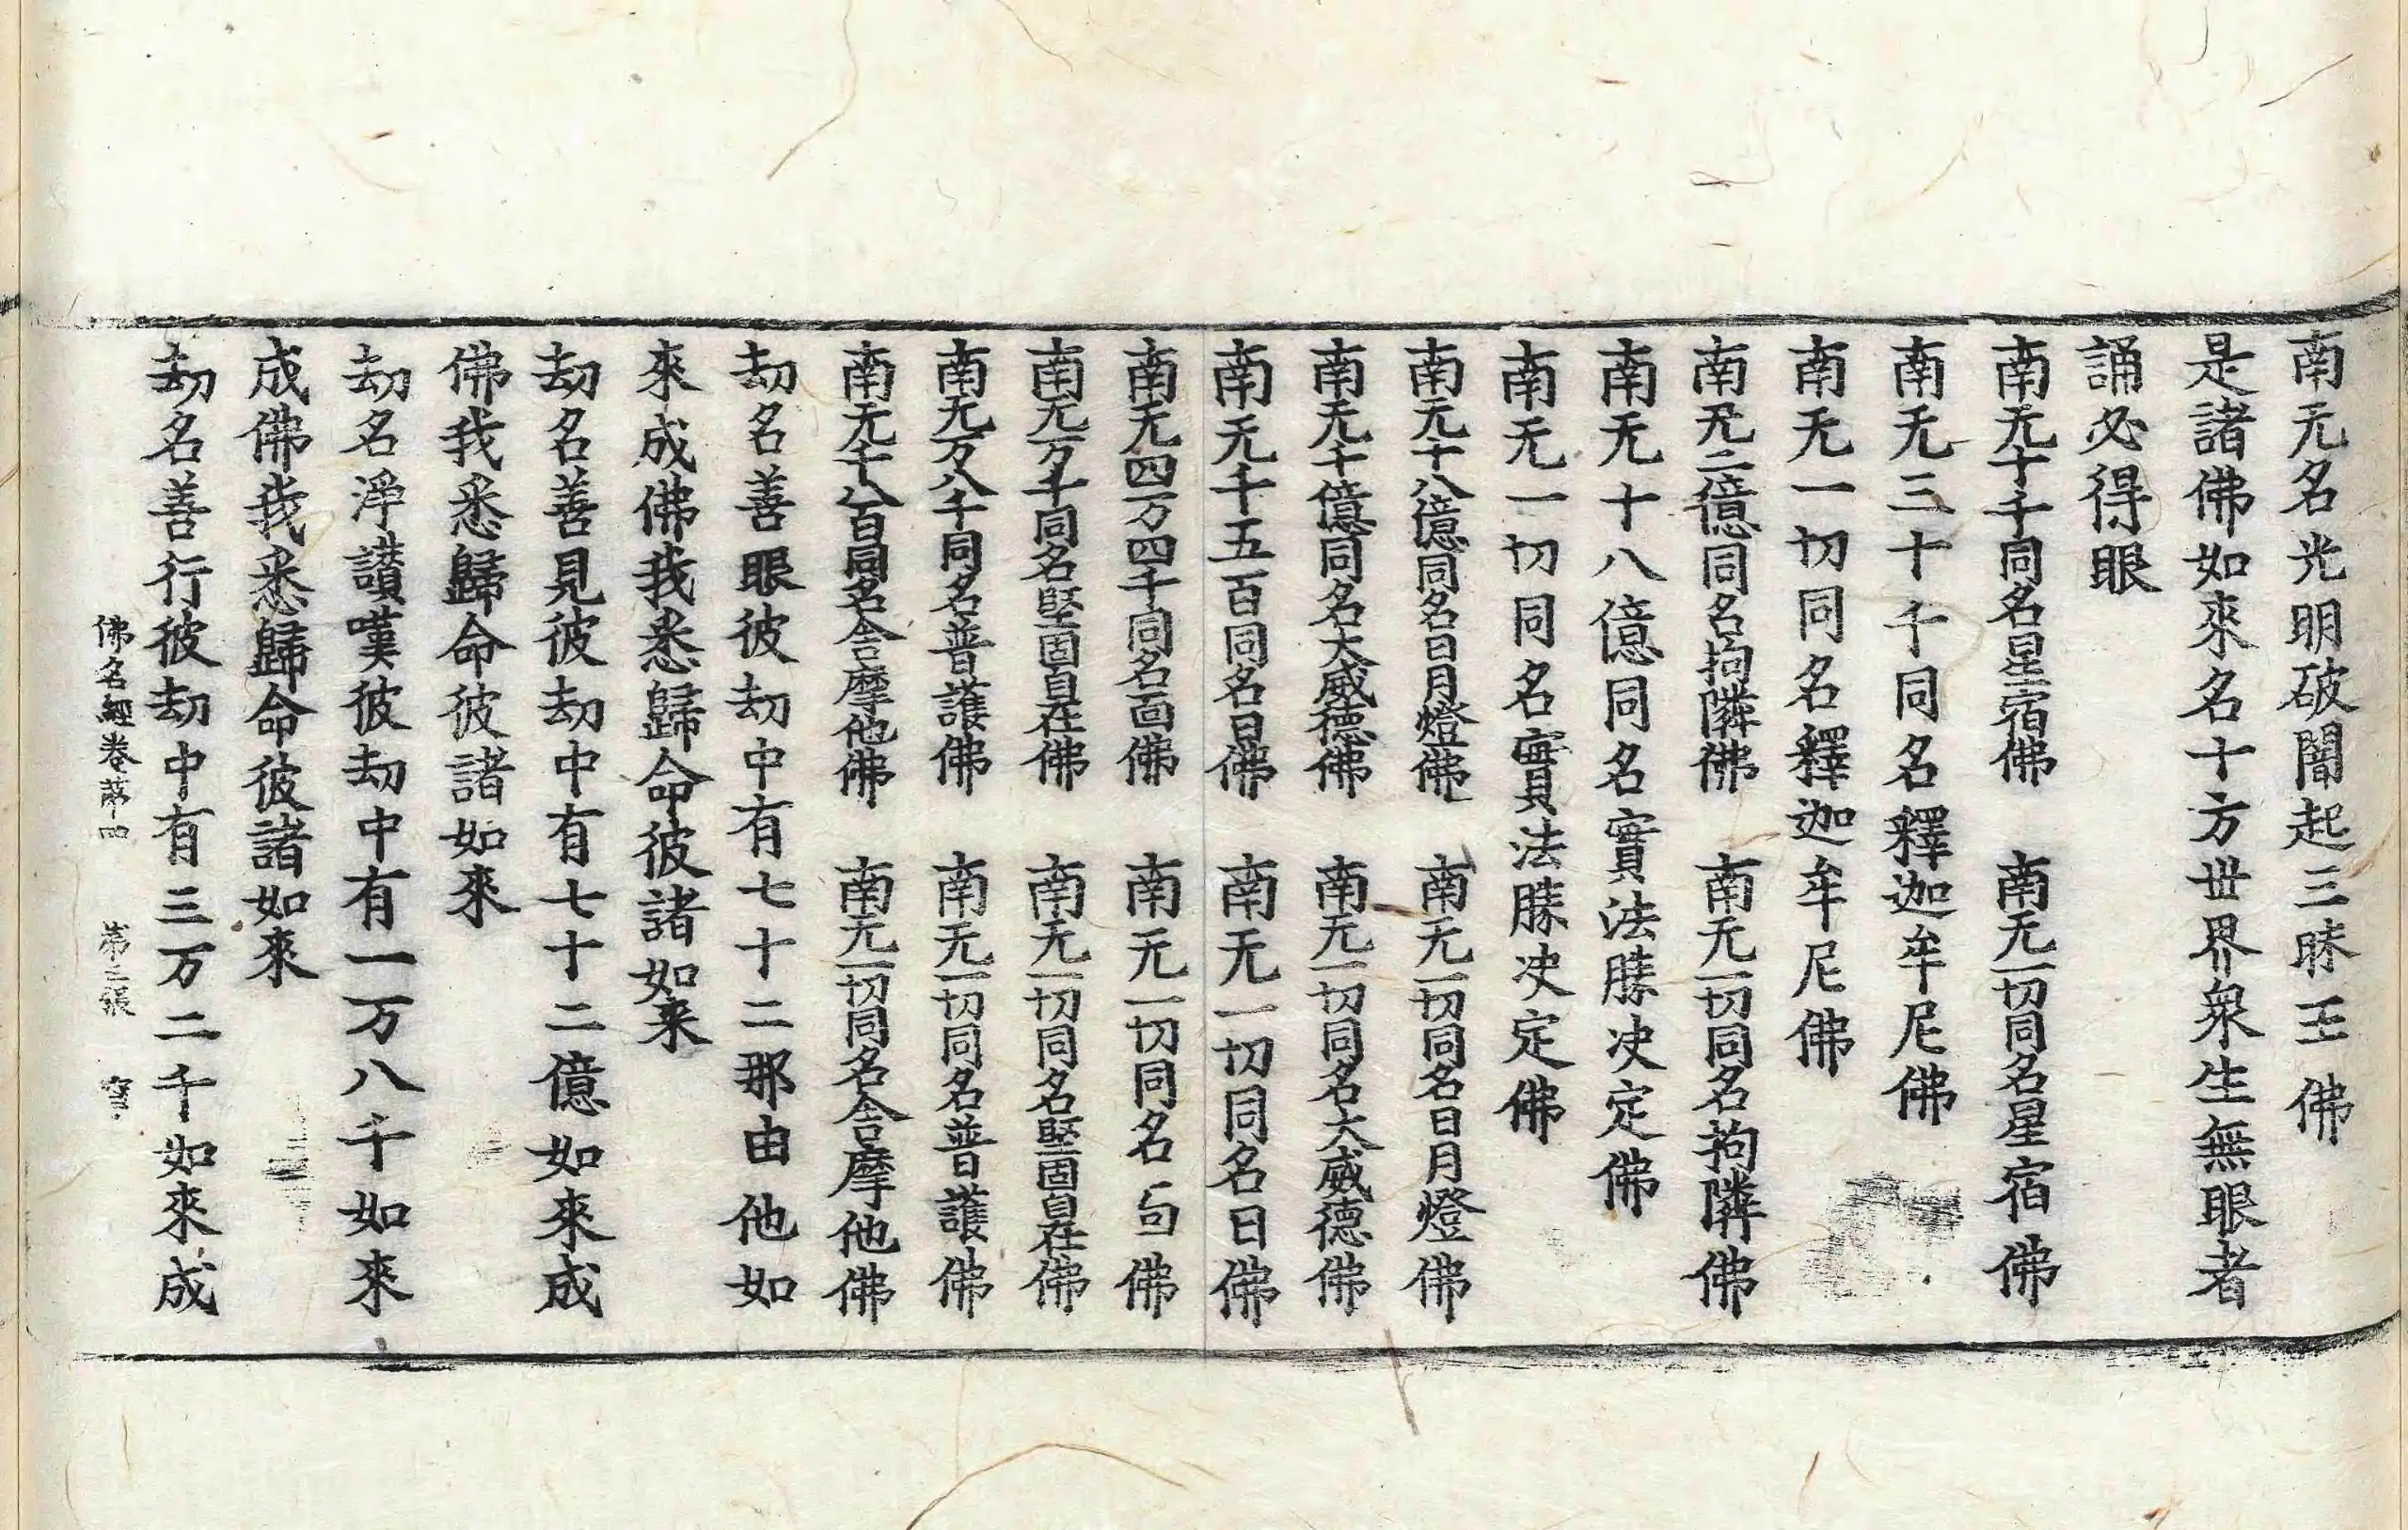 南无名光明破闇起三昧王佛
是諸佛如來名十方世界衆生無眼者
誦必得眼
南无十千同名星宿佛　南无一切同名星宿佛
南无三十千同名釋迦牟尼佛
南无一切同名釋迦牟尼佛
南无二億同名拘隣佛　南无一切同名拘隣佛
南无十八億同名實法勝决定佛
南无一切同名實法勝决定佛
南无十八億同名日月燈佛　南无一切同名日月燈佛
南无千億同名大威德佛　南无一切同名大威德佛
南无千五百同名日佛　南无一切同名日佛
南无四万四千同名面佛　南无一切同名佛
南无万千同名堅固自在佛　南无一切同名堅固自在佛
南无万八千同名普護佛　南无一切同名普護佛
南无千八百同名舍摩他佛　南无一切同名舍摩他佛
劫名善眼彼劫中有七十二那由他如
來成佛我悉歸命彼諸如来
劫名善見彼劫中有七十二億如來成
佛我悉歸命彼諸如來
劫名淨讃嘆彼劫中有一万八千如來
成佛我悉歸命彼諸如來
劫名善行彼劫中有三万二千如來成
佛名經卷第四　第三張